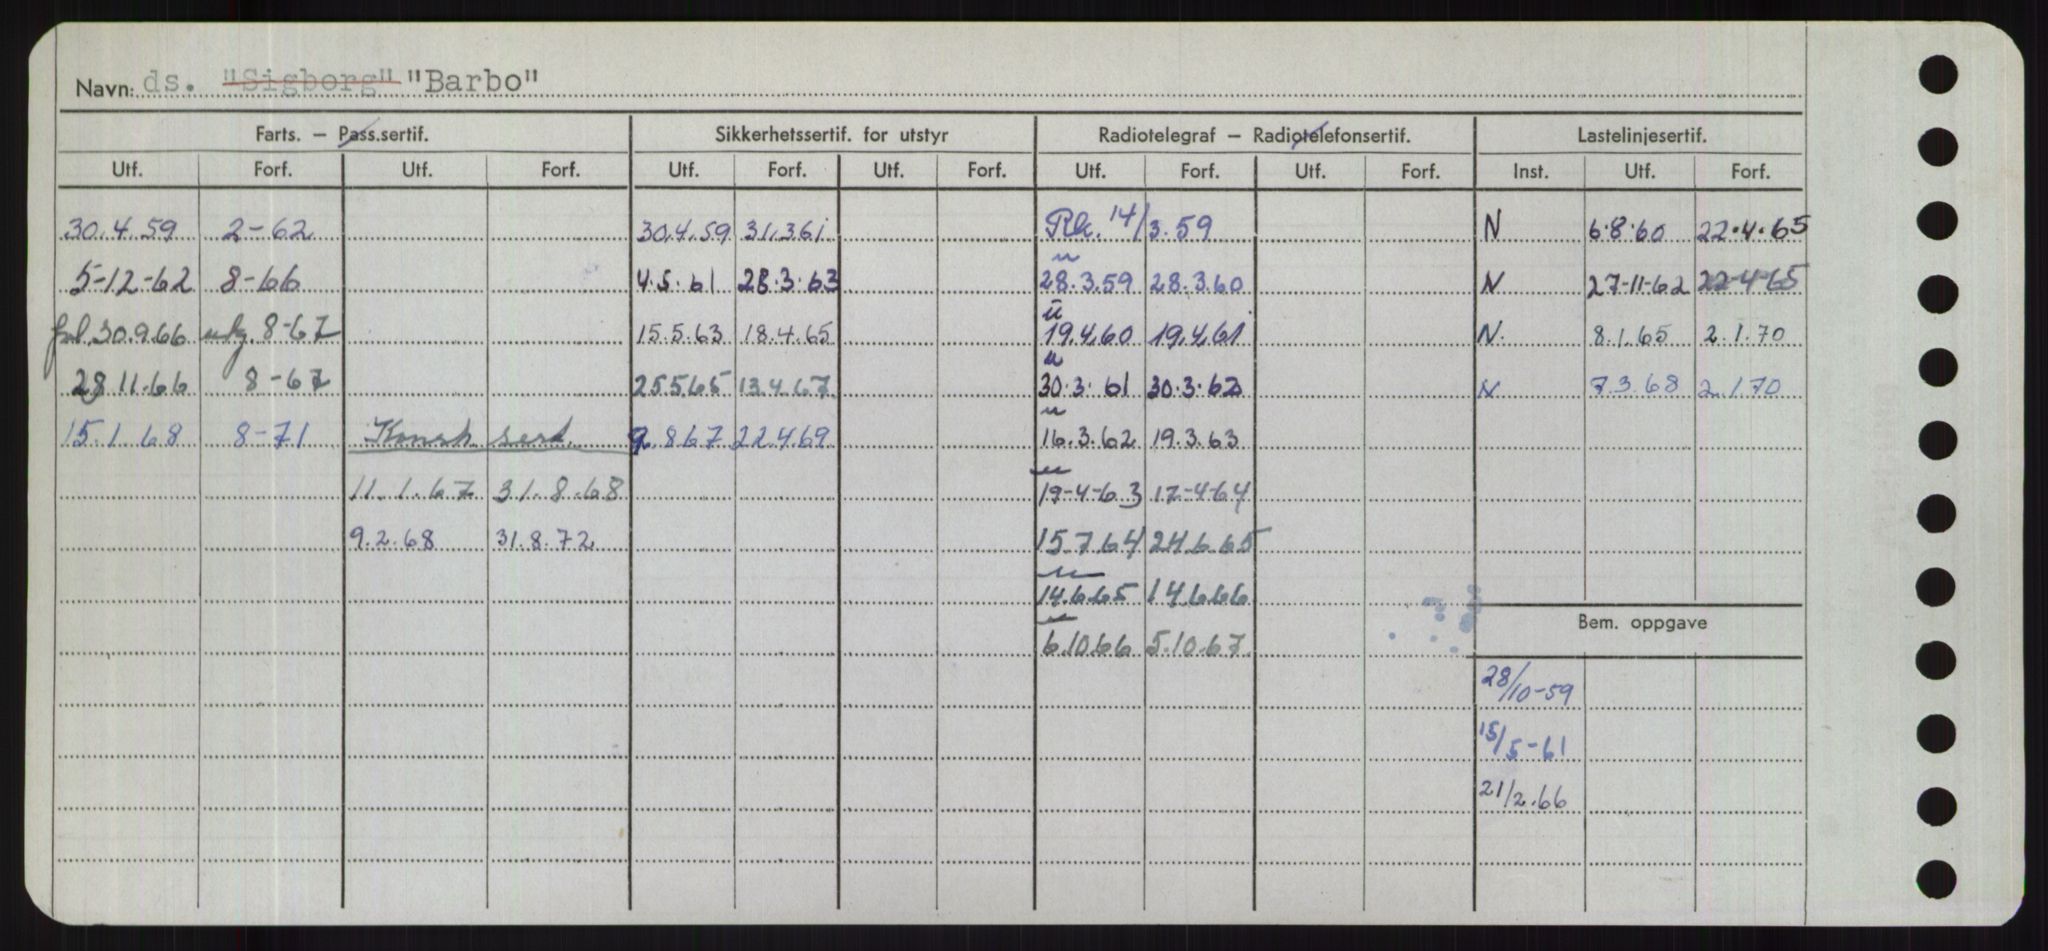 Navn: ds. "Sigborg" "Barbo"
Farts. — Pass.sertif. Sikkerhetssertif. for utstyr Radiotelegraf — Radiotelefonsertif. Lastelinjesertif.
Utf. Forf. Utf. Forf. Utf. Forf. Utf. Forf. Utf. Forf. Utf. Forf. Inst. Utf. Forf.
30.4.59 2-62 30.4.59 31.3.61 Rk. 14/3.59 N 6.8.60 22.4.65
5-12-62 8-66 4.5.61 28.3.63 28.3.59 28.3.60 N 27-11-62 22-4-65
30.9.66 8-67 15.5.63 18.4.65 19.4.60 19.4.61 N. 8.1.65 2.1.70
28.11.66 8-67 25.5.65 13.4.67 30.3.61 30.3.62 N 7.3.68 2.1.70
15.1.68 8-71 Konst. sert. 2.8.67 22.4.69 16.3.62 19.3.63
11.1.67 31.8.68 19-4-63 17-4-64
9.2.68 31.8.72 15.7.64 24.6.65
14.6.65 14.6.66
Bem. oppgave
6.10.66 5.10.67
28/10-59
15/5-61
21/2.66